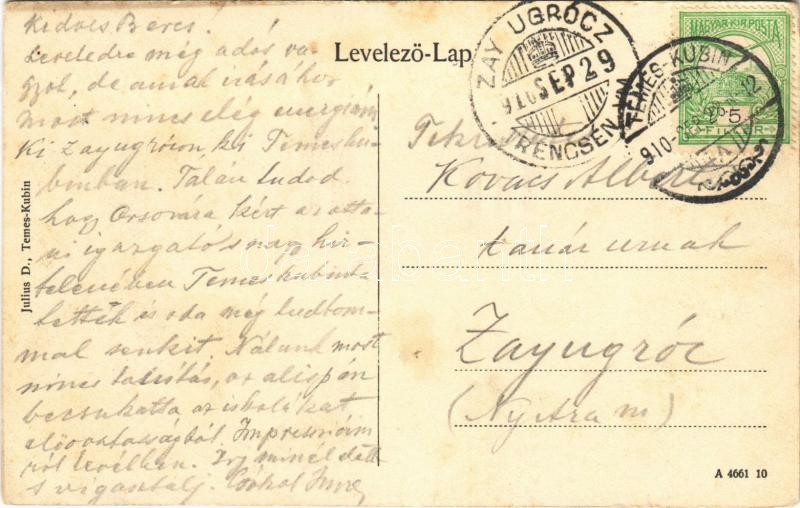 Kedves Berci!
Leveledre még adós va-
gyok, de annak írásához
most nincs elég energiám
Ki Zayugrócon, ki Temesku-
binban. Talán tudod
hogy Orsovára kért az otta-
ni igazgató s nagy hir-
telenében Temeskubint-
tették és oda még tudtom-
mal senkit. Nálunk most
nincs tanítás, az alispán
becsukatta az iskolákat
elővigyázatból. Impresszióim
ról levélben. Írj minél előbb
s vigasztalj. Csókol Imre
Julius D., Temes-Kubin
Levelező-Lap
ZAY UGRÓCZ
910 SEP 29
TRENCSÉN VM
TEMES-KUBIN
910
MAGYAR KIR. POSTA
5
FILLÉR
Kovács Albert
tanár urnak
Zayugróc
(Nyitra m)
A 4661 10
darabanth